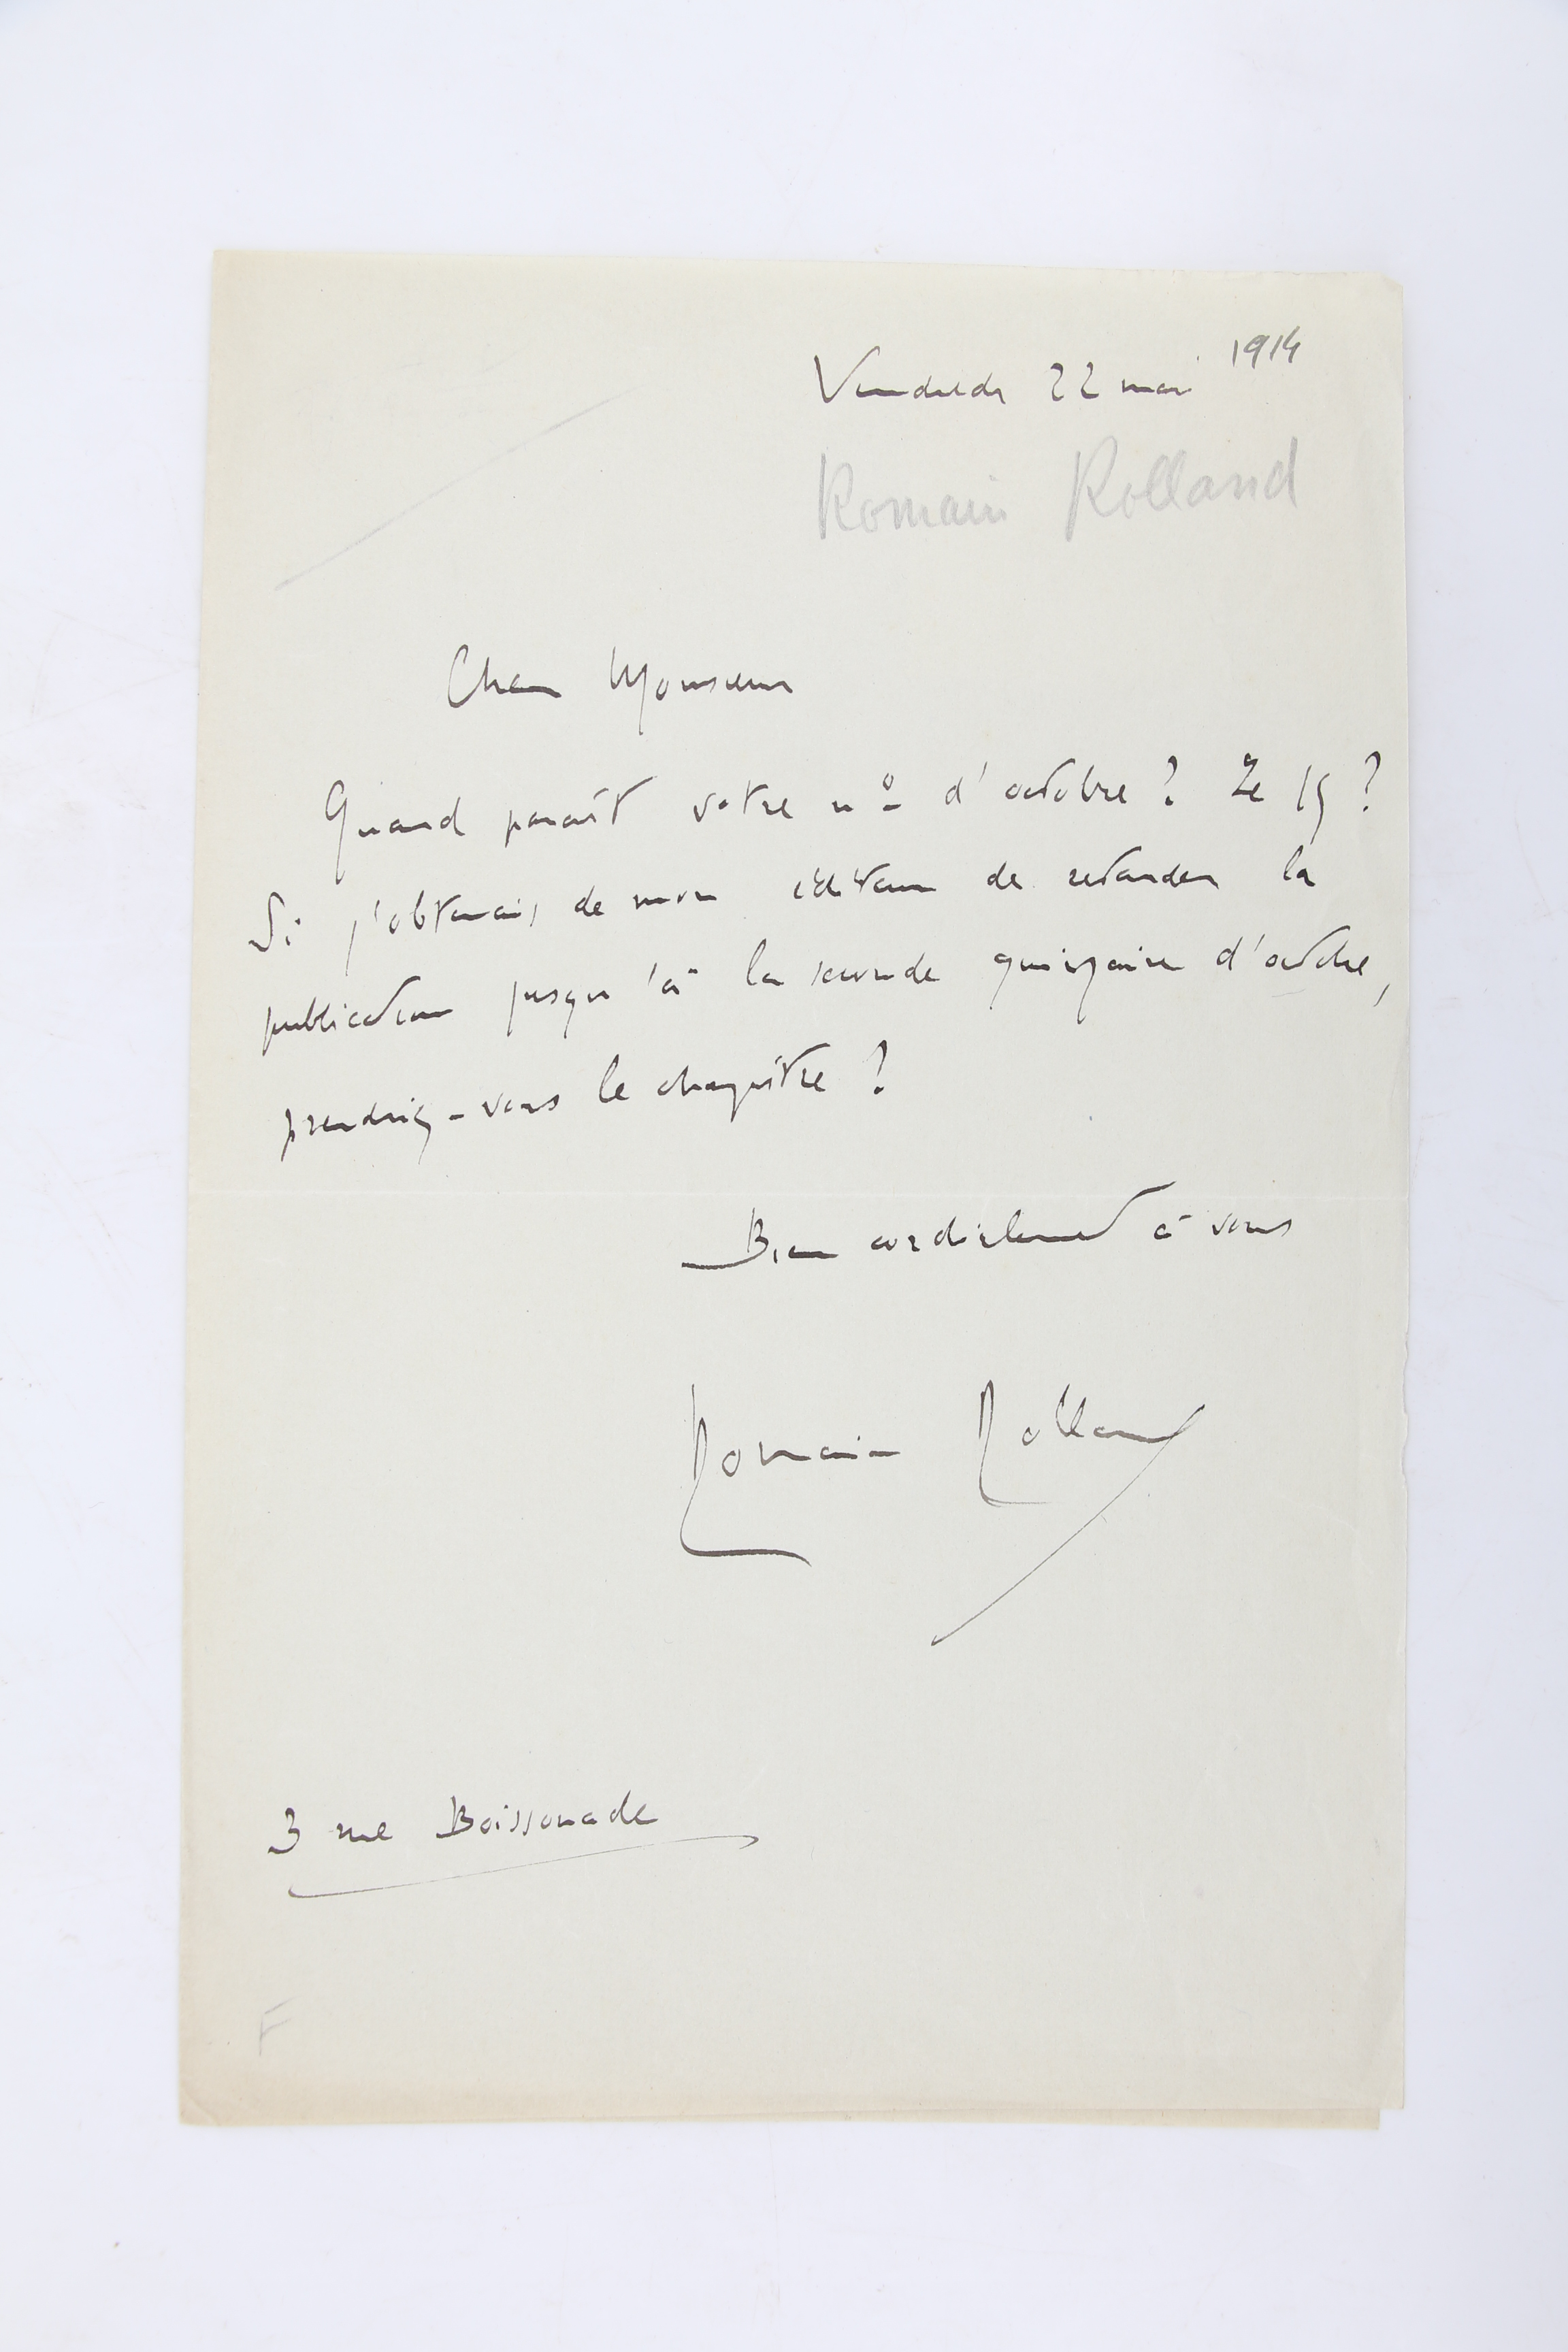 Vendredi 22 mai 1914
Romain Rolland
Cher Monsieur
Quand paraît votre nº d'octobre ? Le 15 ?
Si j'obtenais de mon éditeur de retarder la
publication jusqu'à la seconde quinzaine d'octobre,
prendriez-vous le chapitre ?
Bien cordialement à vous
Romain Rolland
3 rue Boissonade
F